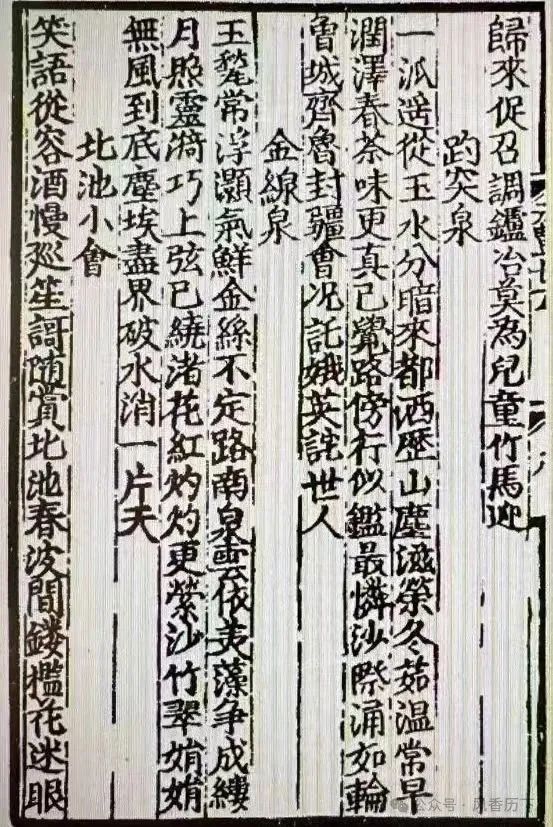 歸來促召調鑪冶莫為兒童竹馬迎
趵突泉
一派遥從玉水分暗來都洒歷山塵滋榮冬茹温常早
潤澤春茶味更真已覺路傍行似鑑最憐沙際涌如輪
曾城齊魯封疆會况託娥英詫世人
金線泉
玉甃常浮灝氣鮮金絲不定路南泉雲依美藻爭成縷
月照靈漪巧上弦已繞渚花紅灼灼更縈沙竹翠娟娟
無風到底塵埃盡界破水消一片天
北池小會
笑語從容酒慢廵笙謌随賞北池春波間鏤檻花迷眼
公众号·风香历下